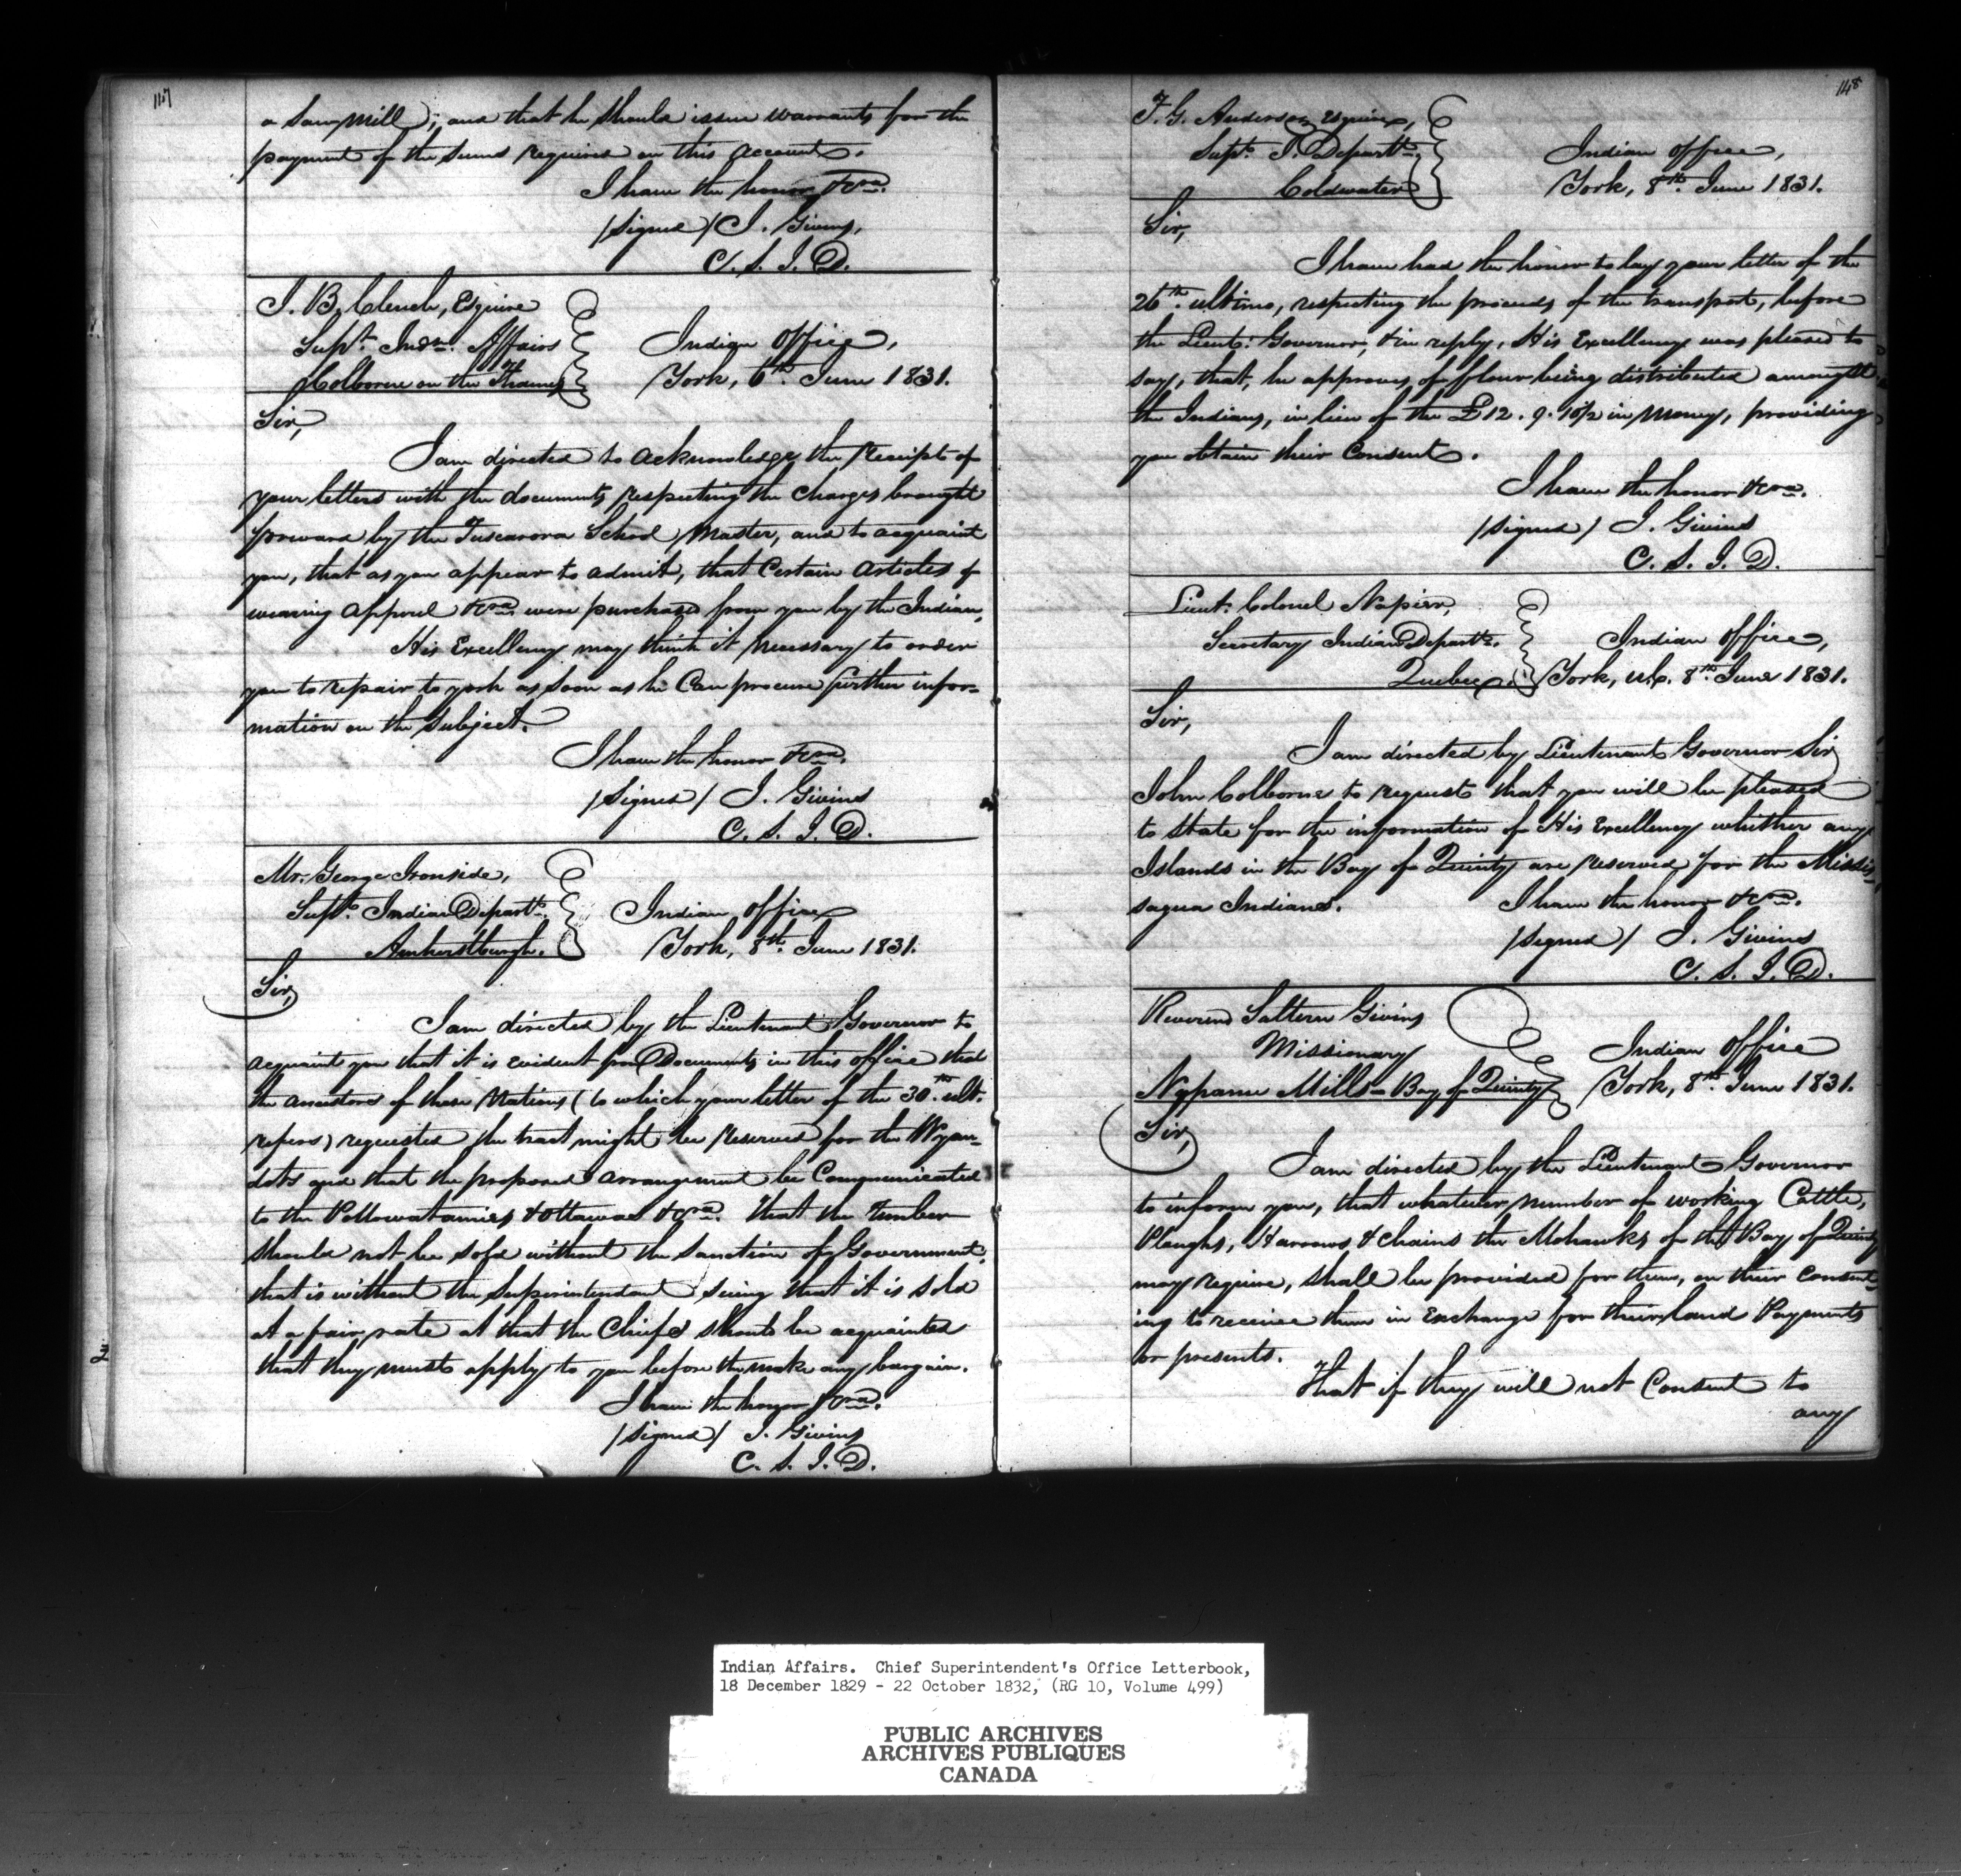 117
a Saw mill; and that he should issue warrants for the
payment of the sums required on this account.
I have the honor &c.ra
/signed/ J. Givins,
C. S. I. D.
J. B. Clench, Esquire
Supt. Indn. Affairs
Colborne on the Thames
Indian Office,
York, 6th June 1831.
Sir,
I am directed to acknowledge the receipt of
your letters with the documents respecting the charges brought
forward by the Tuscarora School Master, and to acquaint
you, that as you appear to admit, that Certain articles of
wearing apparel &c.ra were purchased from you by the Indian,
His Excellency may think it necessary to order
you to repair to york as soon as he Can procure further infor-
mation on the subject.
I have the honor &c.ra
/signed/ J. Givins
C. S. I. D.
Mr. George Ironside,
Supt. Indian Departt.
Amherstburgh.
Indian Office
York, 8th June 1831.
Sir,
I am directed by the Lieutenant Governor to
acquaint you that it is evident from Documents in this office that
the ancestors of these Nations (to which your letter of the 30th ult.
refers) requested the tract might be reserved for the Wyan-
dots and that the proposed arrangement be Communicated
to the Pottowatamies & Ottawas &c.ra That the Timber
should not be sold without the sanction of Government,
that is without the Superintendant seeing that it is sold
at a fair rate at that the Chiefs should be acquainted
that they must apply to you before the make any bargain.
I have the honor &c.ra
/signed/ J. Givins
C. S. I. D.
118
T. G. Anderson Esquire,
Supt. I. Departt.
Coldwater
Indian Office,
York, 8th June 1831.
Sir,
I have had the honor to lay your letter of the
26th ultimo, respecting the proceeds of the transport, before
the Lieut. Governor, & in reply, His Excellency was pleased to
say, that, he approves of flour being distributed amongst
the Indians, in lieu of the £12. 9. 10½ in money, providing
you obtain their Consent.
I have the honor &c.ra
/signed/ J. Givins
C. S. I. D.
Lieut. Colonel Napier,
Secretary Indian Departt.
Quebec
Indian Office,
York, U.C. 8th June 1831.
Sir,
I am directed by Lieutenant Governor Sir
John Colborne to request that you will be pleased
to state for the information of His Excellency whither any
Islands in the Bay of Quinty are reserved for the Missis-
sagua Indians.
I have the honor &c.ra
/signed/ J. Givins
C. S. I. D.
Reverend Saltern Givins
Missionary
Nappanne Mills - Bay of Quinty
Indian Office
York, 8th June 1831.
Sir,
I am directed by the Lieutenant Governor
to inform you, that whatever number of working Cattle,
Ploughs, Harrows & chains the Mohawks of the Bay of Quinty
may require, shall be provided for them, on their consent-
ing to receive them in Exchange for their land Payments
or presents.
That if they will not Consent to
any
Indian Affairs. Chief Superintendent's Office Letterbook,
18 December 1829 - 22 October 1832, (RG 10, Volume 499)
PUBLIC ARCHIVES
ARCHIVES PUBLIQUES
CANADA